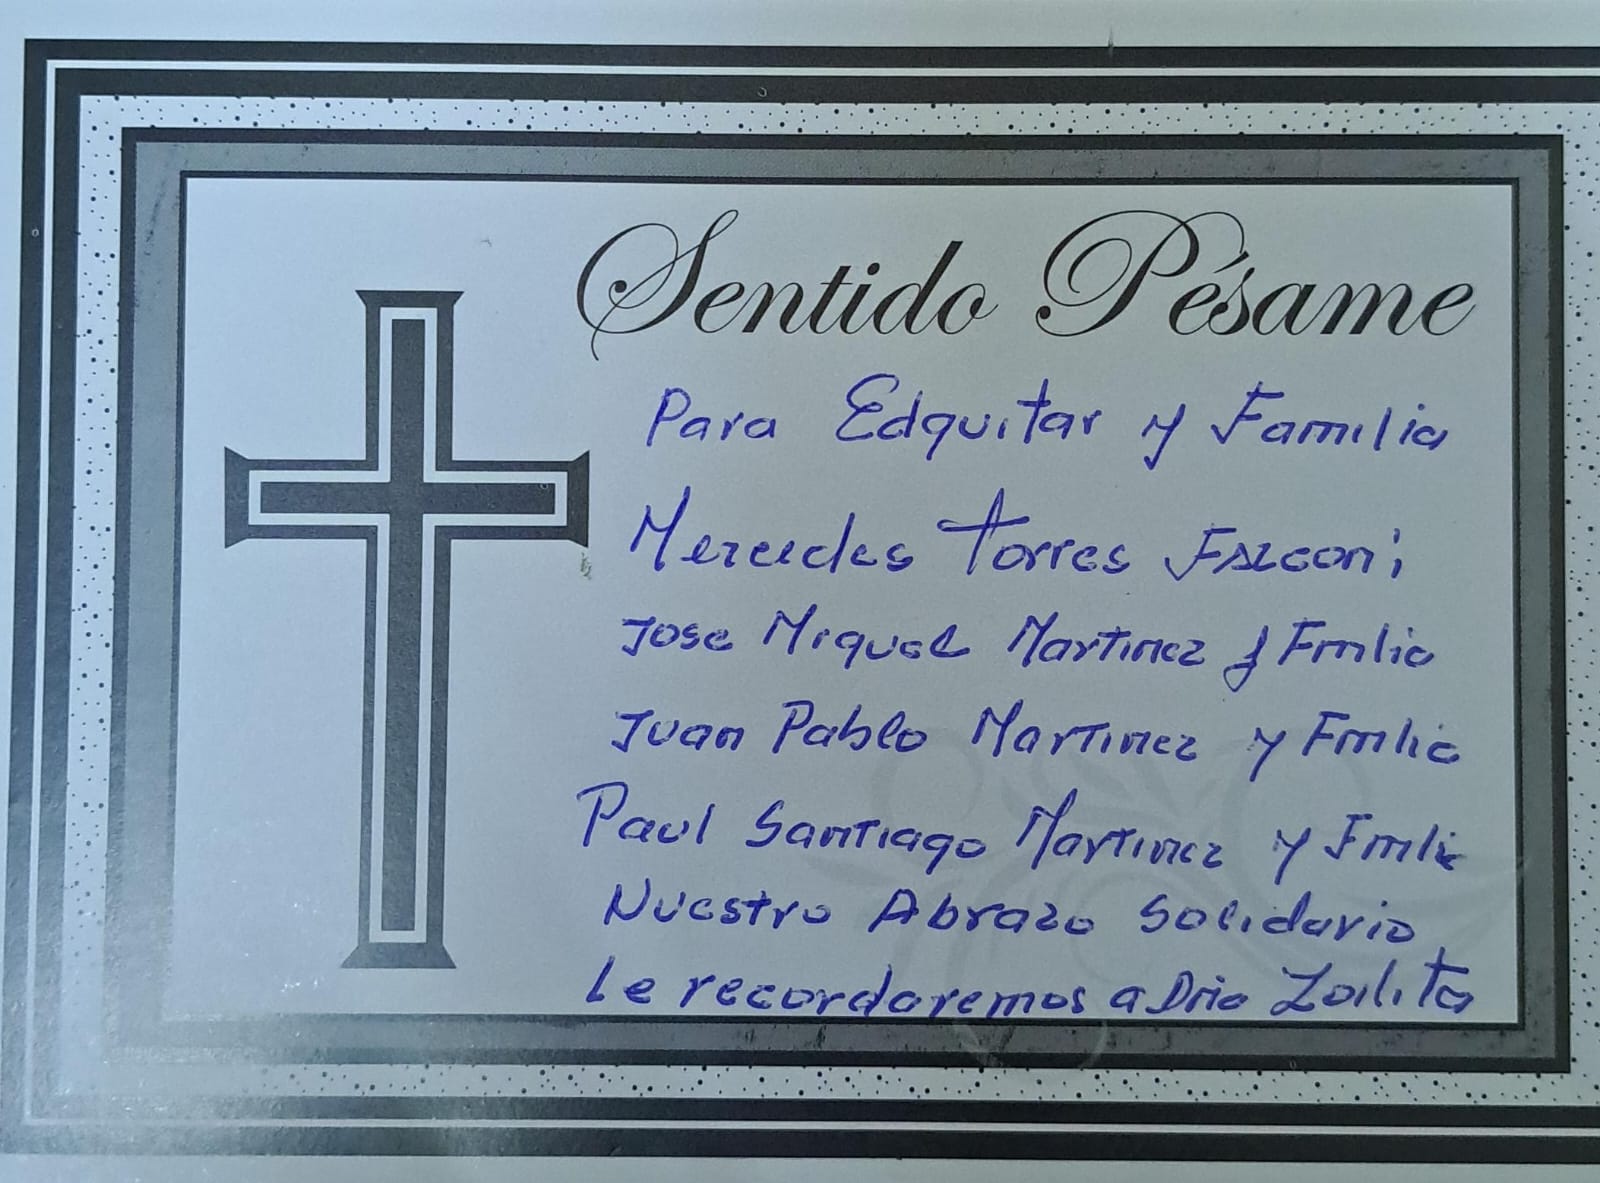 Sentido Pésame
Para Edguitar y Familia
Mercedes Torres Falconi
Jose Miguel Martinez y Fmlia
Juan Pablo Martinez y Fmlia
Paul Santiago Martinez y Fmlia
Nuestro Abrazo Solidario
Le recordaremos a Dña Zoilita